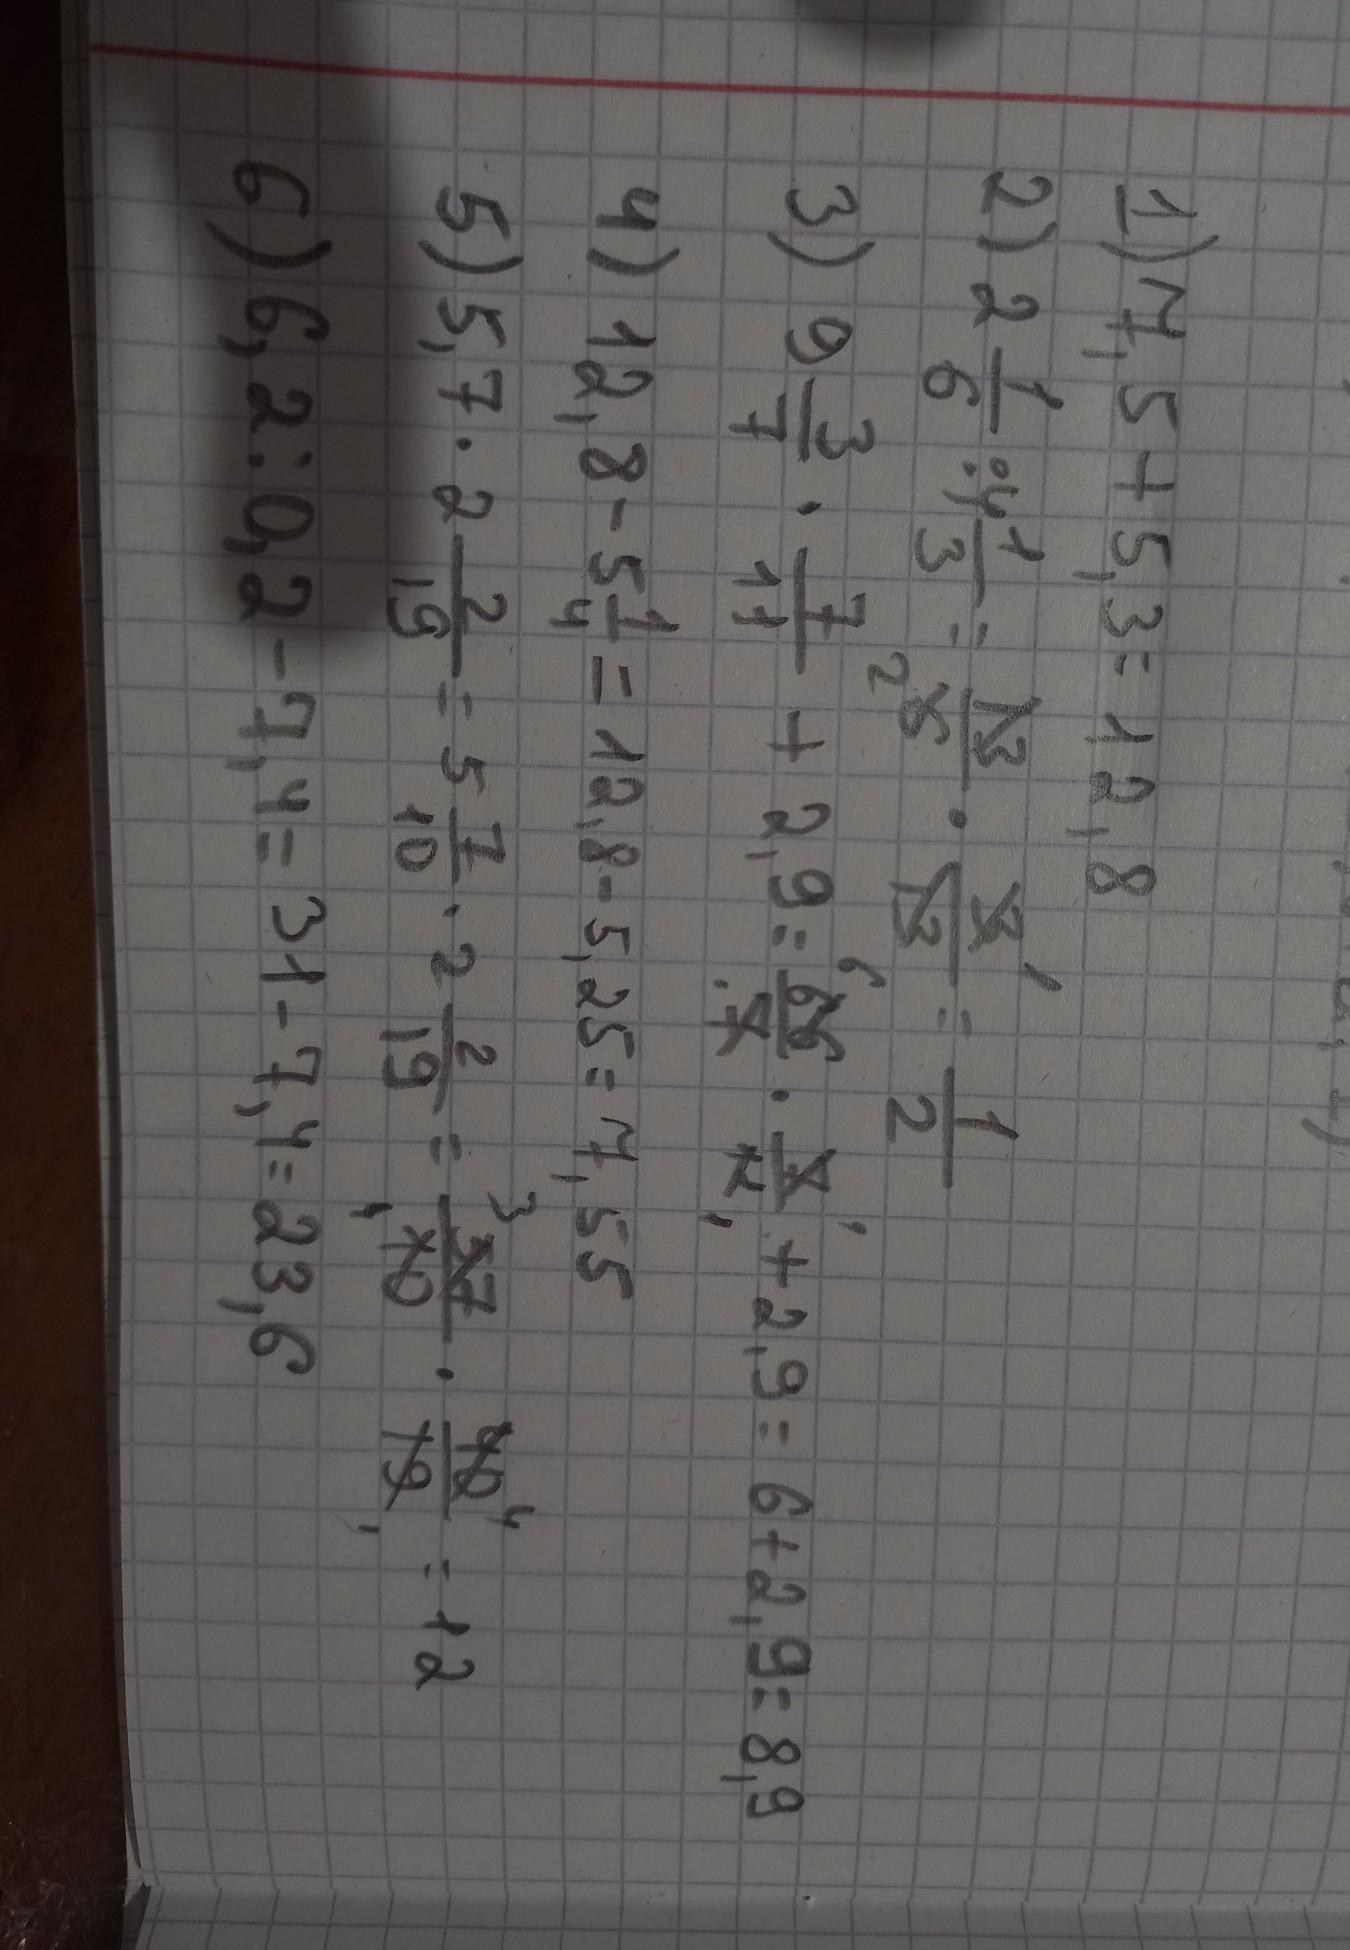 1) 7,5 + 5,3 = 12,8
2) 2 1/6 : 4 1/3 = 13/6 · 3/13 = 1/2
3) 9 3/7 · 7/11 + 2,9 = 66/7 · 7/11 + 2,9 = 6 + 2,9 = 8,9
4) 12,8 - 5 1/4 = 12,8 - 5,25 = 7,55
5) 5,7 · 2 2/19 = 5 7/10 · 2 2/19 = 57/10 · 40/19 = 12
6) 6,2 : 0,2 - 7,4 = 31 - 7,4 = 23,6